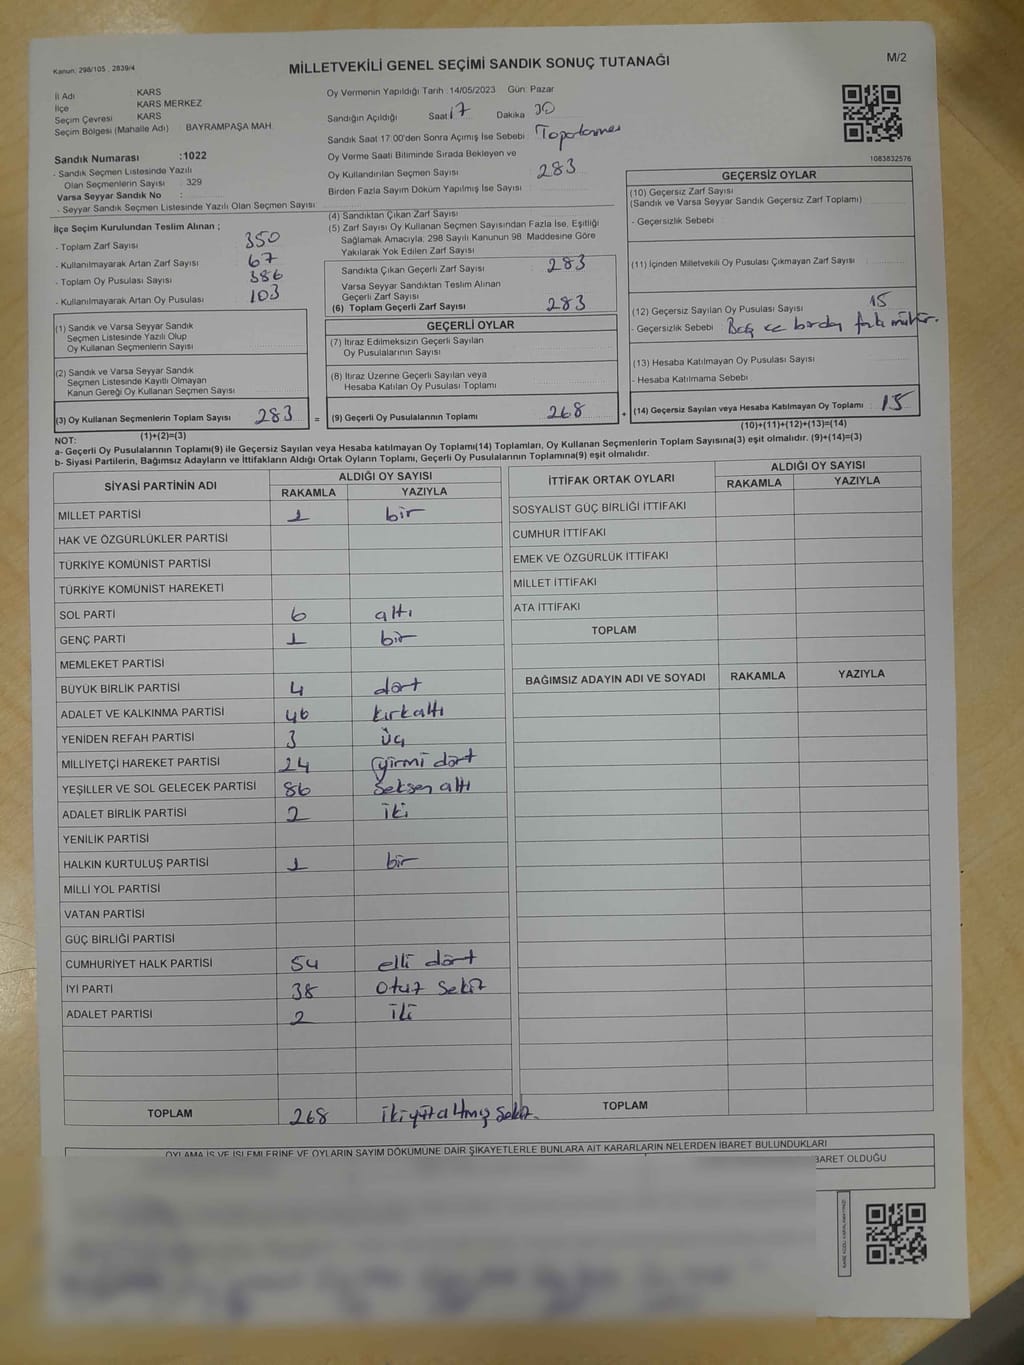 Kanun: 298/105 , 2839/4
MİLLETVEKİLİ GENEL SEÇİMİ SANDIK SONUÇ TUTANAĞI
M/2
İl Adı KARS
İlçe KARS MERKEZ
Seçim Çevresi KARS
Seçim Bölgesi (Mahalle Adı) BAYRAMPAŞA MAH.
Sandık Numarası :1022
- Sandık Seçmen Listesinde Yazılı
Olan Seçmenlerin Sayısı : 329
Varsa Seyyar Sandık No :
- Seyyar Sandık Seçmen Listesinde Yazılı Olan Seçmen Sayısı:
Oy Vermenin Yapıldığı Tarih :14/05/2023 Gün: Pazar
Sandığın Açıldığı Saat 17 Dakika 30
Sandık Saat 17:00'den Sonra Açımış İse Sebebi :
Oy Verme Saati Bitiminde Sırada Bekleyen ve
Oy Kullandırılan Seçmen Sayısı : 283
Birden Fazla Sayım Döküm Yapılmış İse Sayısı :
1083832576
İlçe Seçim Kurulundan Teslim Alınan ;
- Toplam Zarf Sayısı 350
- Kullanılmayarak Artan Zarf Sayısı 67
- Toplam Oy Pusulası Sayısı 386
- Kullanılmayarak Artan Oy Pusulası 103
(1) Sandık ve Varsa Seyyar Sandık
Seçmen Listesinde Yazılı Olup
Oy Kullanan Seçmenlerin Sayısı
(2) Sandık ve Varsa Seyyar Sandık
Seçmen Listesinde Kayıtlı Olmayan
Kanun Gereği Oy Kullanan Seçmen Sayısı
(3) Oy Kullanan Seçmenlerin Toplam Sayısı 283
(1)+(2)=(3)
(4) Sandıktan Çıkan Zarf Sayısı
(5) Zarf Sayısı Oy Kullanan Seçmen Sayısından Fazla İse, Eşitliği
Sağlamak Amacıyla; 298 Sayılı Kanunun 98. Maddesine Göre
Yakılarak Yok Edilen Zarf Sayısı
Sandıkta Çıkan Geçerli Zarf Sayısı 283
Varsa Seyyar Sandıktan Teslim Alınan
Geçerli Zarf Sayısı
(6) Toplam Geçerli Zarf Sayısı 283
GEÇERLİ OYLAR
(7) İtiraz Edilmeksizin Geçerli Sayılan
Oy Pusulalarının Sayısı
(8) İtiraz Üzerine Geçerli Sayılan veya
Hesaba Katılan Oy Pusulası Toplamı
= (9) Geçerli Oy Pusulalarının Toplamı 268
GEÇERSİZ OYLAR
(10) Geçersiz Zarf Sayısı
(Sandık ve Varsa Seyyar Sandık Geçersiz Zarf Toplamı)
- Geçersizlik Sebebi :
(11) İçinden Milletvekili Oy Pusulası Çıkmayan Zarf Sayısı
(12) Geçersiz Sayılan Oy Pusulası Sayısı 15
- Geçersizlik Sebebi : Boş ve birden fazla mühür.
(13) Hesaba Katılmayan Oy Pusulası Sayısı
- Hesaba Katılmama Sebebi :
+ (14) Geçersiz Sayılan veya Hesaba Katılmayan Oy Toplamı 15
(10)+(11)+(12)+(13)=(14)
NOT:
a- Geçerli Oy Pusulalarının Toplamı(9) ile Geçersiz Sayılan veya Hesaba katılmayan Oy Toplamı(14) Toplamları, Oy Kullanan Seçmenlerin Toplam Sayısına(3) eşit olmalıdır. (9)+(14)=(3)
b- Siyasi Partilerin, Bağımsız Adayların ve İttifakların Aldığı Ortak Oyların Toplamı, Geçerli Oy Pusulalarının Toplamına(9) eşit olmalıdır.
SİYASİ PARTİNİN ADI ALDIĞI OY SAYISI
RAKAMLA YAZIYLA
MİLLET PARTİSİ 1 bir
HAK VE ÖZGÜRLÜKLER PARTİSİ
TÜRKİYE KOMÜNİST PARTİSİ
TÜRKİYE KOMÜNİST HAREKETİ
SOL PARTİ 6 altı
GENÇ PARTİ 1 bir
MEMLEKET PARTİSİ
BÜYÜK BİRLİK PARTİSİ 4 dört
ADALET VE KALKINMA PARTİSİ 46 kırkaltı
YENİDEN REFAH PARTİSİ 3 üç
MİLLİYETÇİ HAREKET PARTİSİ 24 yirmi dört
YEŞİLLER VE SOL GELECEK PARTİSİ 86 seksen altı
ADALET BİRLİK PARTİSİ 2 iki
YENİLİK PARTİSİ
HALKIN KURTULUŞ PARTİSİ 1 bir
MİLLİ YOL PARTİSİ
VATAN PARTİSİ
GÜÇ BİRLİĞİ PARTİSİ
CUMHURİYET HALK PARTİSİ 54 elli dört
İYİ PARTİ 38 otuz sekiz
ADALET PARTİSİ 2 iki
TOPLAM 268 ikiyüzaltmış sekiz.
İTTİFAK ORTAK OYLARI ALDIĞI OY SAYISI
RAKAMLA YAZIYLA
SOSYALİST GÜÇ BİRLİĞİ İTTİFAKI
CUMHUR İTTİFAKI
EMEK VE ÖZGÜRLÜK İTTİFAKI
MİLLET İTTİFAKI
ATA İTTİFAKI
TOPLAM
BAĞIMSIZ ADAYIN ADI VE SOYADI RAKAMLA YAZIYLA
TOPLAM
OYLAMA İŞ VE İŞLEMLERİNE VE OYLARIN SAYIM DÖKÜMÜNE DAİR ŞİKAYETLERLE BUNLARA AİT KARARLARIN NELERDEN İBARET BULUNDUKLARI
BARET OLDUĞU